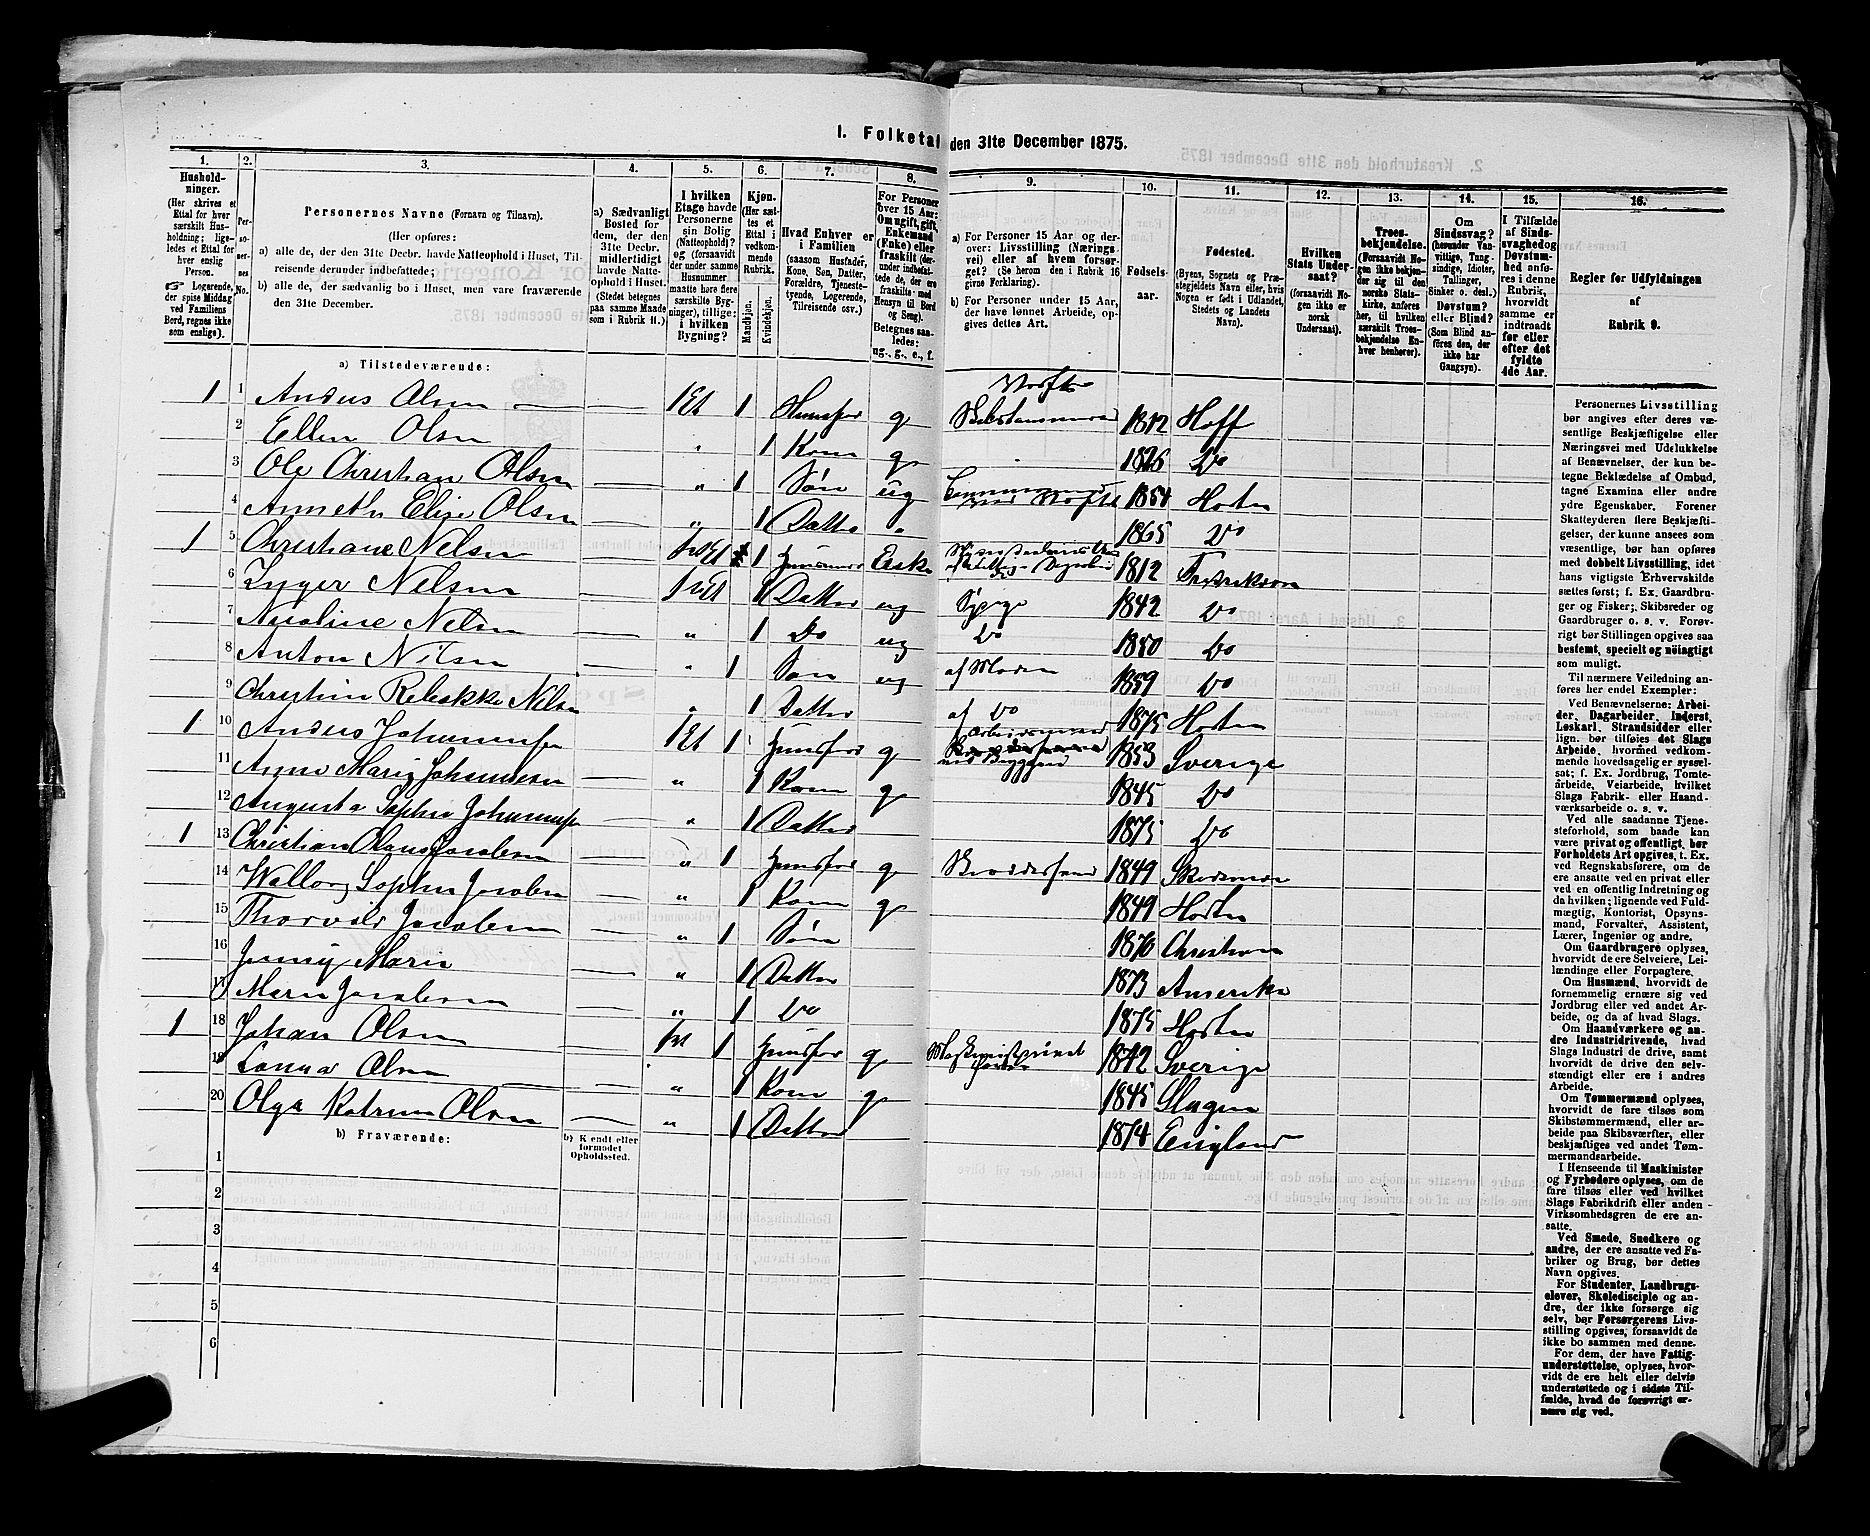 I. Folketal den 31te December 1875.
1. 2. 3. 4. 5. 6. 7. 8. 9. 10. 11. 12. 13. 14. 15. 16.
Husholdninger. (Her skrives et Ettal for hver særskilt Husholdning; ligeledes et Ettal for hver enslig Person. Logerende, der spise Middag ved Familiens Bord, regnes ikke som enslige).
Personernes No.
Personernes Navne (Fornavn og Tilnavn).
(Her opføres:
a) alle de, der den 31te Decbr. havde Natteophold i Huset, Tilreisende derunder indbefattede;
b) alle de, der sædvanlig bo i Huset, men vare fraværende den 31te December.
a) Sædvanligt Bosted for dem, der den 31te Decbr. midlertidigt havde Natteophold i Huset. (Stedet betegnes paa samme Maade som i Rubrik 11.)
I hvilken Etage havde Personerne sin Bolig (Natteophold)? og (forsaavidt der under samme Husnummer maatte høre flere særskilte Bygninger), tillige: i hvilken Bygning?
Kjøn. (Her sættes et Ettal i vedkommende Rubrik. Mandkjøn. Kvindekjøn.
Hvad Enhver er i Familien (saasom Husfader, Kone, Søn, Datter, Forældre, Tjenestetyende, Logerende, Tilreisende osv.)
For Personer over 15 Aar: Om ugift, gift, Enkemand (Enke) eller fraskilt (derunder indbefattede de, der ere fraskilte med Hensyn til Bord og Seng). Betegnes saaledes: ug., g., e., f.
a) For Personer 15 Aar og derover: Livsstilling (Næringsvei) eller af hvem forsørget? (Se herom den i Rubrik 16 givne Forklaring).
b) For Personer under 15 Aar, der have lønnet Arbeide, opgives dettes Art.
Fødselsaar.
Fødested. (Byens, Sognets og Præstegjeldets Navn eller, hvis Nogen er født i Udlandet, Stedets og Landets Navn).
Hvilken Stats Undersaat? (forsaavidt Nogen ikke er norsk Undersaat).
Troesbekjendelse. (Forsaavidt Nogen ikke bekjender sig til den norske Statskirke, anføres her, til hvilken særskilt Troesbekjendelse Enhver henhører).
Om Sindssvag? (herunder Vanvittige, Tungsindige, Idioter, Tullinger, Sinker o. desl.) Døvstum? eller Blind? (Som Blind anføres den, der ikke har Gangsyn).
I Tilfælde af Sindssvaghed og Døvstumhed anføres i denne Rubrik, hvorvidt samme er indtraadt før eller efter det fyldte 4de Aar.
Regler for Udfyldningen af Rubrik 9.
a) Tilstedeværende:
1 1 Anders Olsen 1 Et 1 Huusfar g 1812 Hoff
2 Ellen Olsen " 1 Kone g 1826 Do
3 Ole Christian Olsen " 1 Søn ug 1854 Horten
4 Annethe Elise Olsen " 1 Datter " 1865 Do
1 5 Christiane Nelsen 1 1812
6 Inger Nelsen 1 Datter ug Syerge 1842 Do
7 Nicoline Nelsen " 1 Do ug Do 1850 Do
8 Anton Nilsen " 1 Søn ug af Moden 1859 Do
9 Christine Rebekke Nelsen 1 Datter af Do 1875 Horten
1 10 Anders Johannesen 1 Et 1 Huusfar g Arbeidsmand ved Byggeri 1853 Sverige
11 Anne Marie Johannesen " 1 Kone g 1845 Do
12 Augusta Sophie Johannesen " 1 Datter 1875 Do
1 13 Christian Olaus Jacobsen " 1 Huusfar g 1849
14 Wallborg Sophie Jacobsen " 1 Kone g 1849 Horten
15 Thorvald Jacobsen " 1 Søn 1870 Christiania
16 Jenny Marie " 1 Datter 1873 Amerika
17 Marie Jacobsen " 1 Do 1875 Horten
1 18 Johan Olsen 1 Huusfar g 1842 Sverige
19 Olsen " 1 Kone g 1845 Slagen
20 Olga Katrine Olsen " 1 Datter 1874 England
b) Fraværende:
b) Kjendt eller formodet Opholdssted.
1
2
3
4
5
6
Personernes Livsstilling
bør angives efter deres væ-
sentlige Beskjæftigelse eller
Næringsvei med Udelukkelse
af Benævnelser, der kun be-
tegne Beklædelse af Ombud,
tagne Examina eller andre
ydre Egenskaber. Forener
Skatteyderen flere Beskjæfti-
gelser, der kunne ansees som
væsentlige, bør han opføres
med dobbelt Livsstilling, idet
hans vigtigste Erhvervskilde
sættes først; f. Ex. Gaardbru-
ger og Fisker; Skibsreder og
Gaardbruger o. s. v. Forøv-
rigt bør Stillingen opgives saa
bestemt, specielt og nöiagtigt
som muligt.
Til nærmere Veiledning an-
føres her endel Exempler:
Ved Benævnelserne: Arbei-
der, Dagarbeider, Inderst,
Løskarl, Strandsidder eller
lign. bør tilføies det Slags
Arbeide, hvormed vedkom-
mende hovedsagelig er syssel-
sat; f. Ex. Jordbrug, Tomte-
arbeide, Veiarbeide, hvilket
Slags Fabrik- eller Haand-
værksarbeide o. s. v.
Ved alle saadanne Tjene-
steforhold, som baade kan
være privat og offentligt, bør
Forholdets Art opgives, t. Ex.
ved Regnskabsførere, om de
ere ansatte ved en privat eller
ved en offentlig Indretning og
da hvilken; lignende ved Fuld-
mægtig, Kontorist, Opsyns-
mand, Forvalter, Assistent,
Lærer, Ingeniør og andre.
Om Gaardbrugere oplyses,
hvorvidt de ere Selveiere, Lei-
lændinge eller Forpagtere.
Om Husmænd, hvorvidt de
fornemmelig ernære sig ved
Jordbrug eller ved andet Ar-
beide, og da af hvad Slags.
Om Haandværkere og an-
dre Industridrivende, hvad
Slags Industri de drive, samt
hvorvidt de drive den selv-
stændigt eller ere i andres
Arbeide.
Om Tømmermænd oplyses,
hvorvidt de fare tilsøs som
Skibstømmermænd, eller ar-
beide paa Skibsværfter, eller
beskjæftiges ved andet Tøm-
mermandsarbeide.
I Henseende til Maskinister
og Fyrbødere oplyses, om de
fare tilsøs eller ved hvilket
Slags Fabrikdrift eller anden
Virksomhedsgren de ere an-
satte.
Ved Smede, Snedkere og
andre, der ere ansatte ved Fa-
briker og Brug, bør dettes
Navn opgives.
For Studenter, Landbrugs-
elever, Skoledisciple og an-
dre, der ikke forsørge sig
selv, bør Forsørgerens Livs-
stilling opgives, forsaavidt de
ikke bo sammen med denne.
For dem, der have Fattig-
understøttelse, oplyses, hvor-
vidt de ere helt eller delvis
understøttede og i sidste Til-
fælde, hvad de forøvrigt er-
nære sig ved.